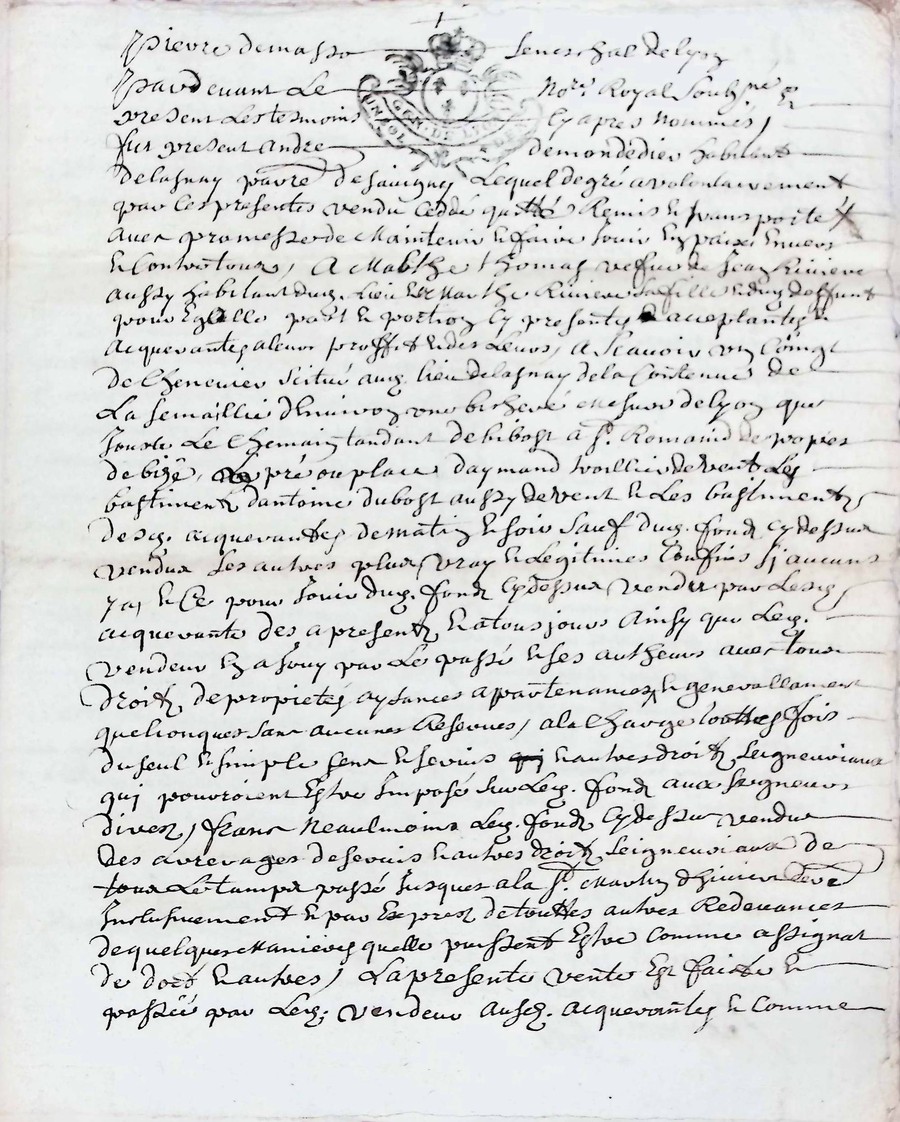 pierre demasso seneschal de lyon
pardevant Le No.re Royal soubz.né &
present Les tesmoins cy apres nommes,
fut present andre demondedieu habitant
delasnay parre. de savigny Lequel degré a volontairement
par ces presentes vendu ceddé quitté Remis et transporté
avec promesse de Maintenir et faire jouir En paix Envers
et Contre tous, A Mathe thomas vefue de Jean Riviere
aussy habitant dud. lieu et Marthe Riviere sa fille et dud deffunt
pour Egalle part et portion cy presentes et acceptantes et
acquerantes a leurs proffit et des leurs, a scavoir un Coing
de Chenevier scitué aud. lieu delasnay de la Contenue de
La semaillie dhuiron une bicherée mesure de lyon que
jouste Le Chemain tandant de bibost a St. Romaind de popies
de bize, pré ou place daymand voillier de vent Les
bastiments dantoine dubost aussy de vent et Les bastiments
desd. acquerantes de matin et soir sauf dud. fond cy dessus
vendus Les autres plus vray et Legitimes Confins sj aucuns
y a, et Ce pour jouir dud. fond cy dessus vendu par Lesd.
acquerante des a present et a tousjours Ainsy que Led.
vendeur En a jouy par Le passé et ses autheurs avec tous
droits de proprietés aysances apartenances et generallement
quelconques sans aucunes Reserves, a la Charge touttes fois
du seul et simple sens et servis et autres droits seigneuriaux
quj pouvroient Estre jmposé sur Led. fond aux seigneurs
divers, franc neaulmoins Led. fond cy dessus vendu
des arrerages de servis et autres droits seigneuriaux de
tous Le temps passé jusques a la St. Martin dhiver
jnclusivement et par Expres de touttes autres Redevances
de quelques manieres quelle puissent Estre comme assignat
de dott et autres, La presente vente Est faicte et
passée par Led. vendeur ausd. acquerantes et comme